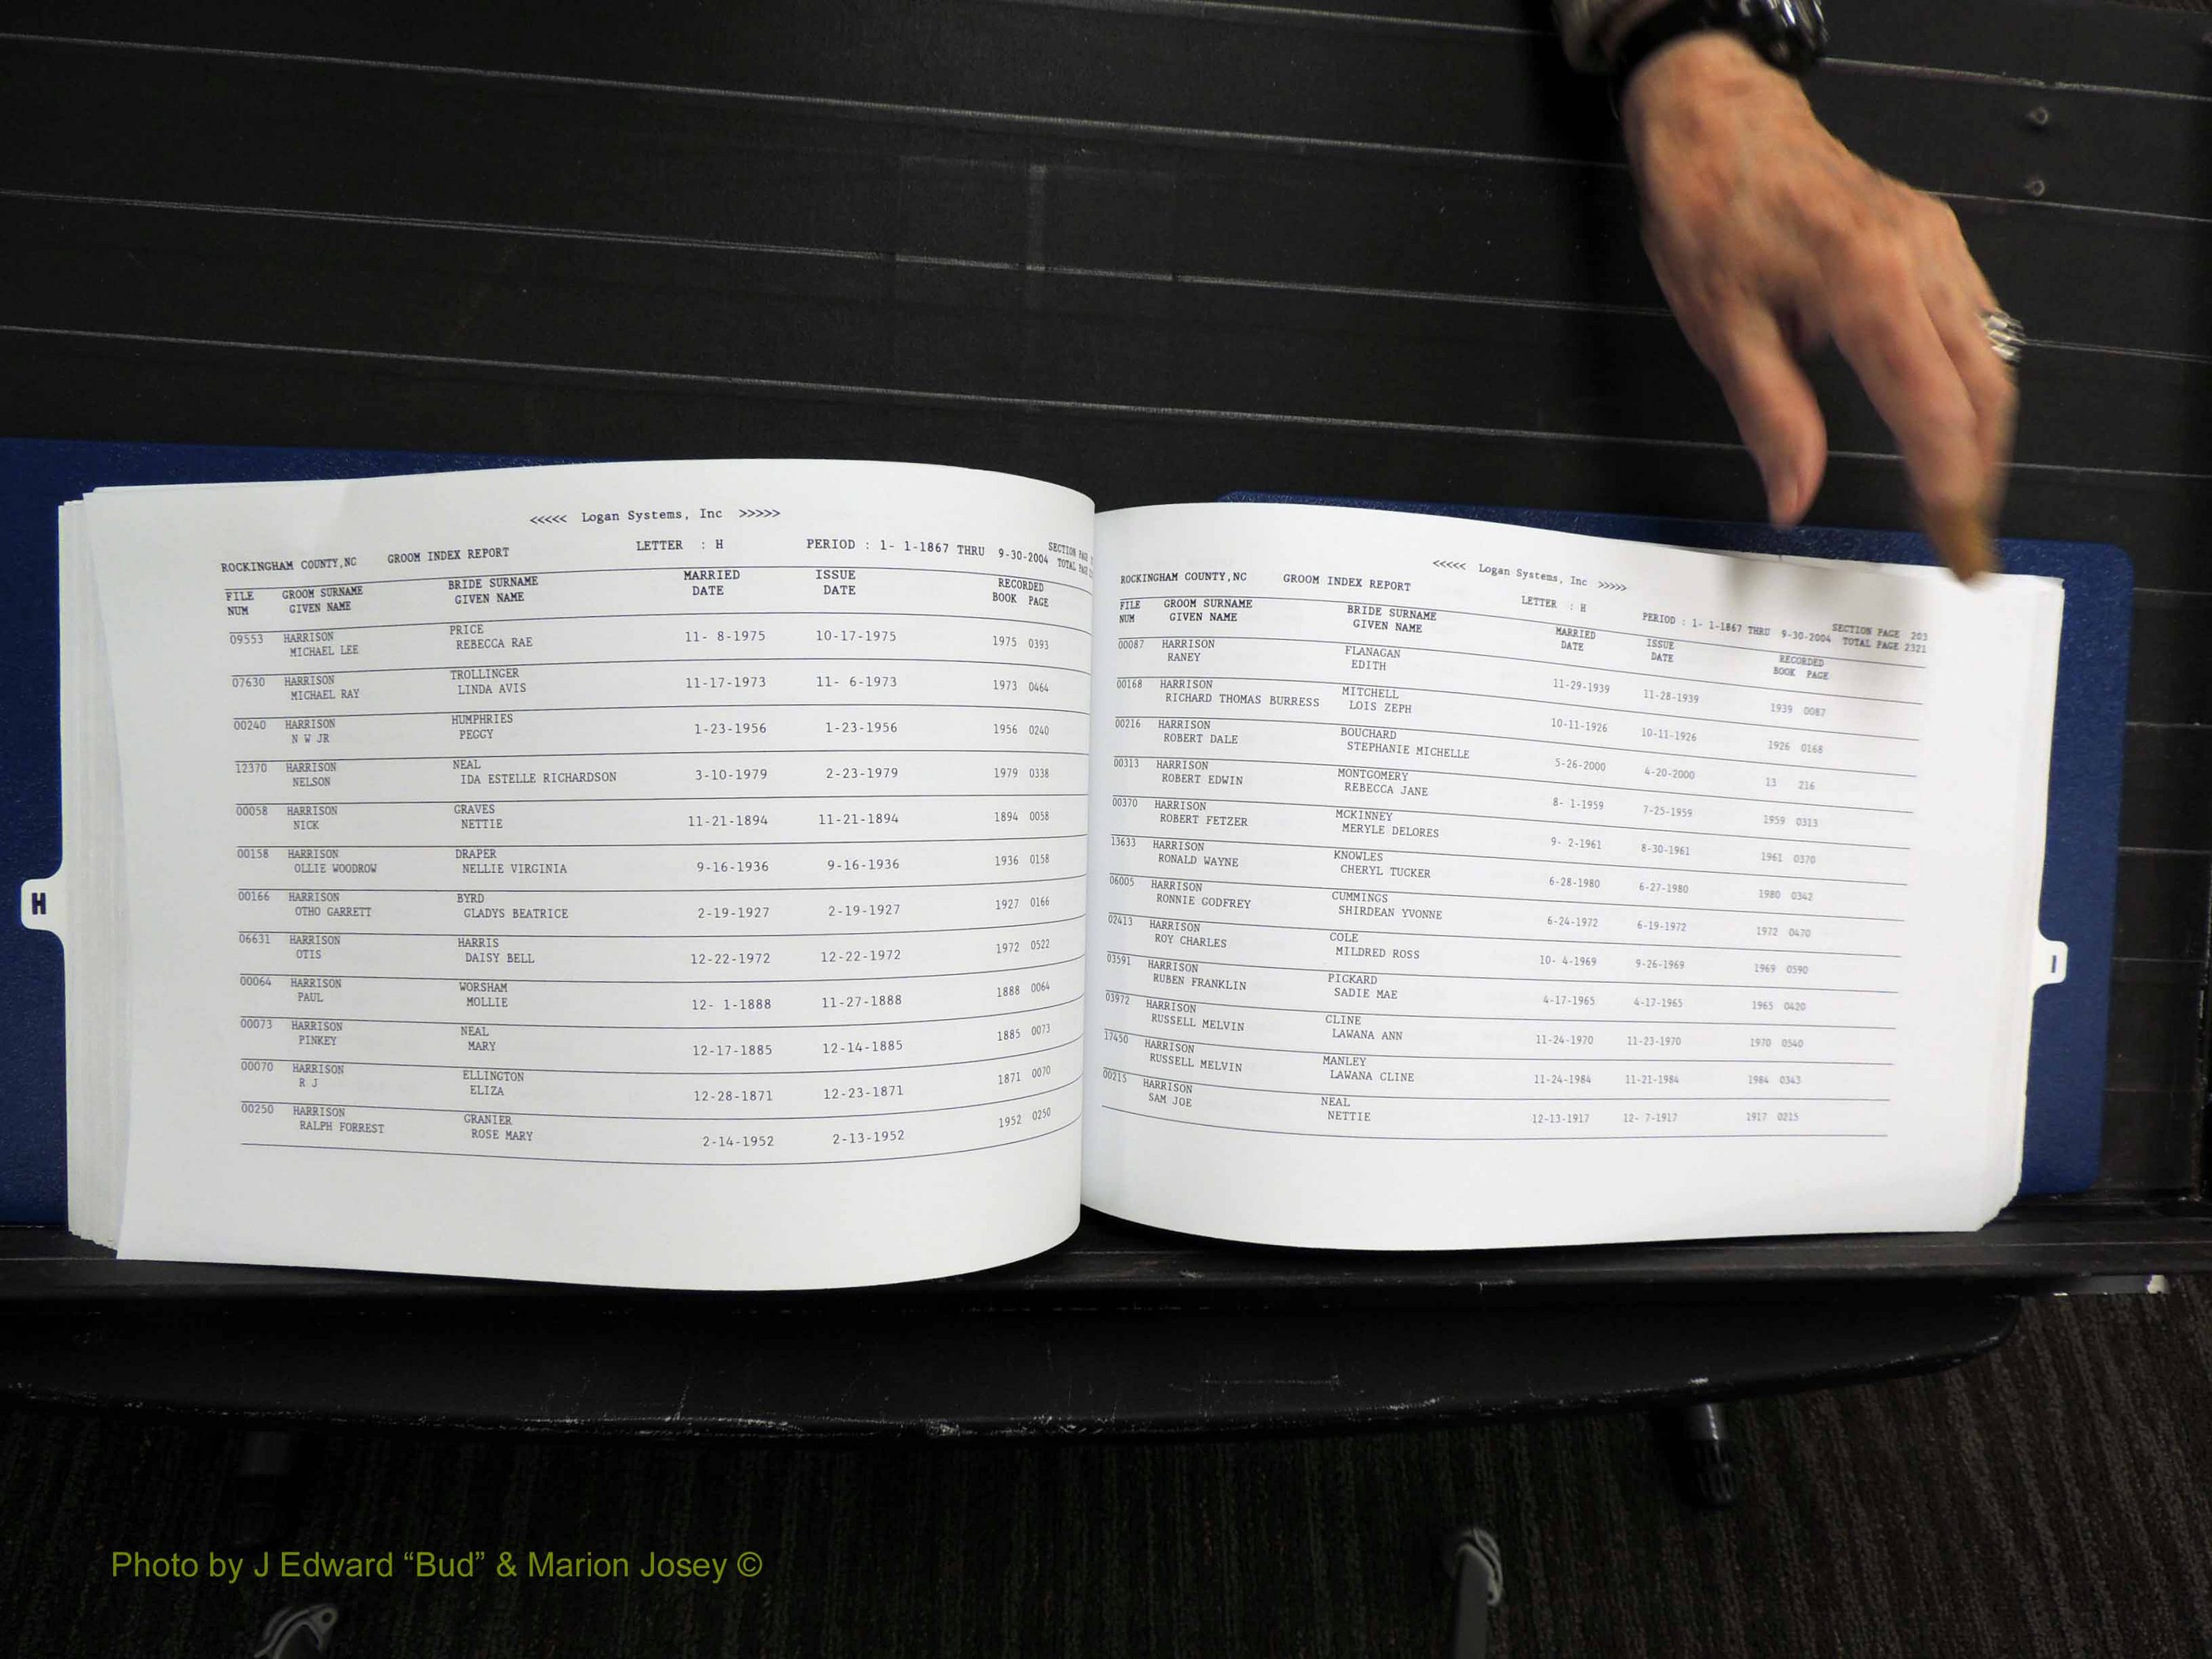 <<<<< Logan Systems, Inc >>>>>
ROCKINGHAM COUNTY,NC GROOM INDEX REPORT LETTER : H PERIOD : 1- 1-1867 THRU 9-30-2004 SECTION PAGE
TOTAL PAGE
FILE GROOM SURNAME BRIDE SURNAME MARRIED ISSUE RECORDED
NUM GIVEN NAME GIVEN NAME DATE DATE BOOK PAGE
09553 HARRISON PRICE 11- 8-1975 10-17-1975 1975 0393
MICHAEL LEE REBECCA RAE
07630 HARRISON TROLLINGER 11-17-1973 11- 6-1973 1973 0464
MICHAEL RAY LINDA AVIS
00240 HARRISON HUMPHRIES 1-23-1956 1-23-1956 1956 0240
N W JR PEGGY
12370 HARRISON NEAL 3-10-1979 2-23-1979 1979 0338
NELSON IDA ESTELLE RICHARDSON
00058 HARRISON GRAVES 11-21-1894 11-21-1894 1894 0058
NICK NETTIE
00158 HARRISON DRAPER 9-16-1936 9-16-1936 1936 0158
OLLIE WOODROW NELLIE VIRGINIA
00166 HARRISON BYRD 2-19-1927 2-19-1927 1927 0166
OTHO GARRETT GLADYS BEATRICE
06631 HARRISON HARRIS 12-22-1972 12-22-1972 1972 0522
OTIS DAISY BELL
00064 HARRISON WORSHAM 12- 1-1888 11-27-1888 1888 0064
PAUL MOLLIE
00073 HARRISON NEAL 12-17-1885 12-14-1885 1885 0073
PINKEY MARY
00070 HARRISON ELLINGTON 12-28-1871 12-23-1871 1871 0070
R J ELIZA
00250 HARRISON GRANIER 2-14-1952 2-13-1952 1952 0250
RALPH FORREST ROSE MARY
H
<<<<< Logan Systems, Inc >>>>>
ROCKINGHAM COUNTY,NC GROOM INDEX REPORT LETTER : H PERIOD : 1- 1-1867 THRU 9-30-2004 SECTION PAGE 203
TOTAL PAGE 2321
FILE GROOM SURNAME BRIDE SURNAME MARRIED ISSUE RECORDED
NUM GIVEN NAME GIVEN NAME DATE DATE BOOK PAGE
00087 HARRISON FLANAGAN 11-29-1939 11-28-1939 1939 0087
RANEY EDITH
00168 HARRISON MITCHELL 10-11-1926 10-11-1926 1926 0168
RICHARD THOMAS BURRESS LOIS ZEPH
00216 HARRISON BOUCHARD 5-26-2000 4-20-2000 13 216
ROBERT DALE STEPHANIE MICHELLE
00313 HARRISON MONTGOMERY 8- 1-1959 7-25-1959 1959 0313
ROBERT EDWIN REBECCA JANE
00370 HARRISON MCKINNEY 9- 2-1961 8-30-1961 1961 0370
ROBERT FETZER MERYLE DELORES
13633 HARRISON KNOWLES 6-28-1980 6-27-1980 1980 0342
RONALD WAYNE CHERYL TUCKER
06005 HARRISON CUMMINGS 6-24-1972 6-19-1972 1972 0470
RONNIE GODFREY SHIRDEAN YVONNE
02413 HARRISON COLE 10- 4-1969 9-26-1969 1969 0590
ROY CHARLES MILDRED ROSS
03591 HARRISON PICKARD 4-17-1965 4-17-1965 1965 0420
RUBEN FRANKLIN SADIE MAE
03972 HARRISON CLINE 11-24-1970 11-23-1970 1970 0540
RUSSELL MELVIN LAWANA ANN
17450 HARRISON MANLEY 11-24-1984 11-21-1984 1984 0343
RUSSELL MELVIN LAWANA CLINE
00215 HARRISON NEAL 12-13-1917 12- 7-1917 1917 0215
SAM JOE NETTIE
I
Photo by J Edward “Bud” & Marion Josey ©